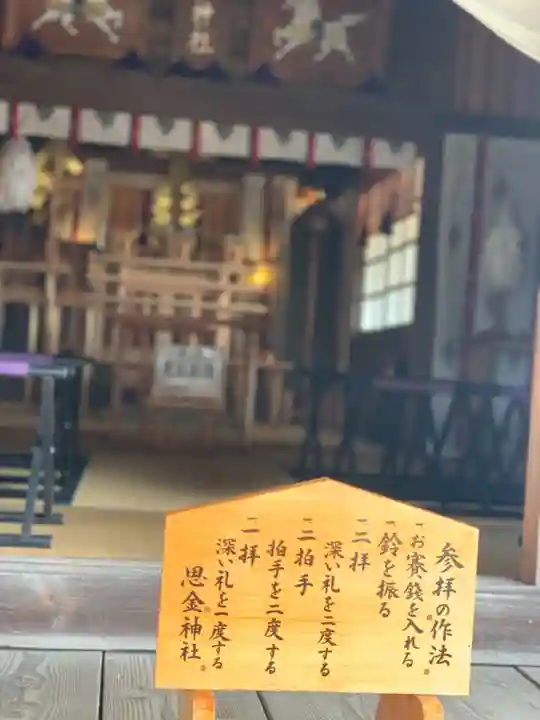 神社
参拝の作法
一お賽銭を入れる
一鈴を振る
一二拝
深い礼を二度する
一二拍手
拍手を二度する
一一拝
深い礼を一度する
恩金神社